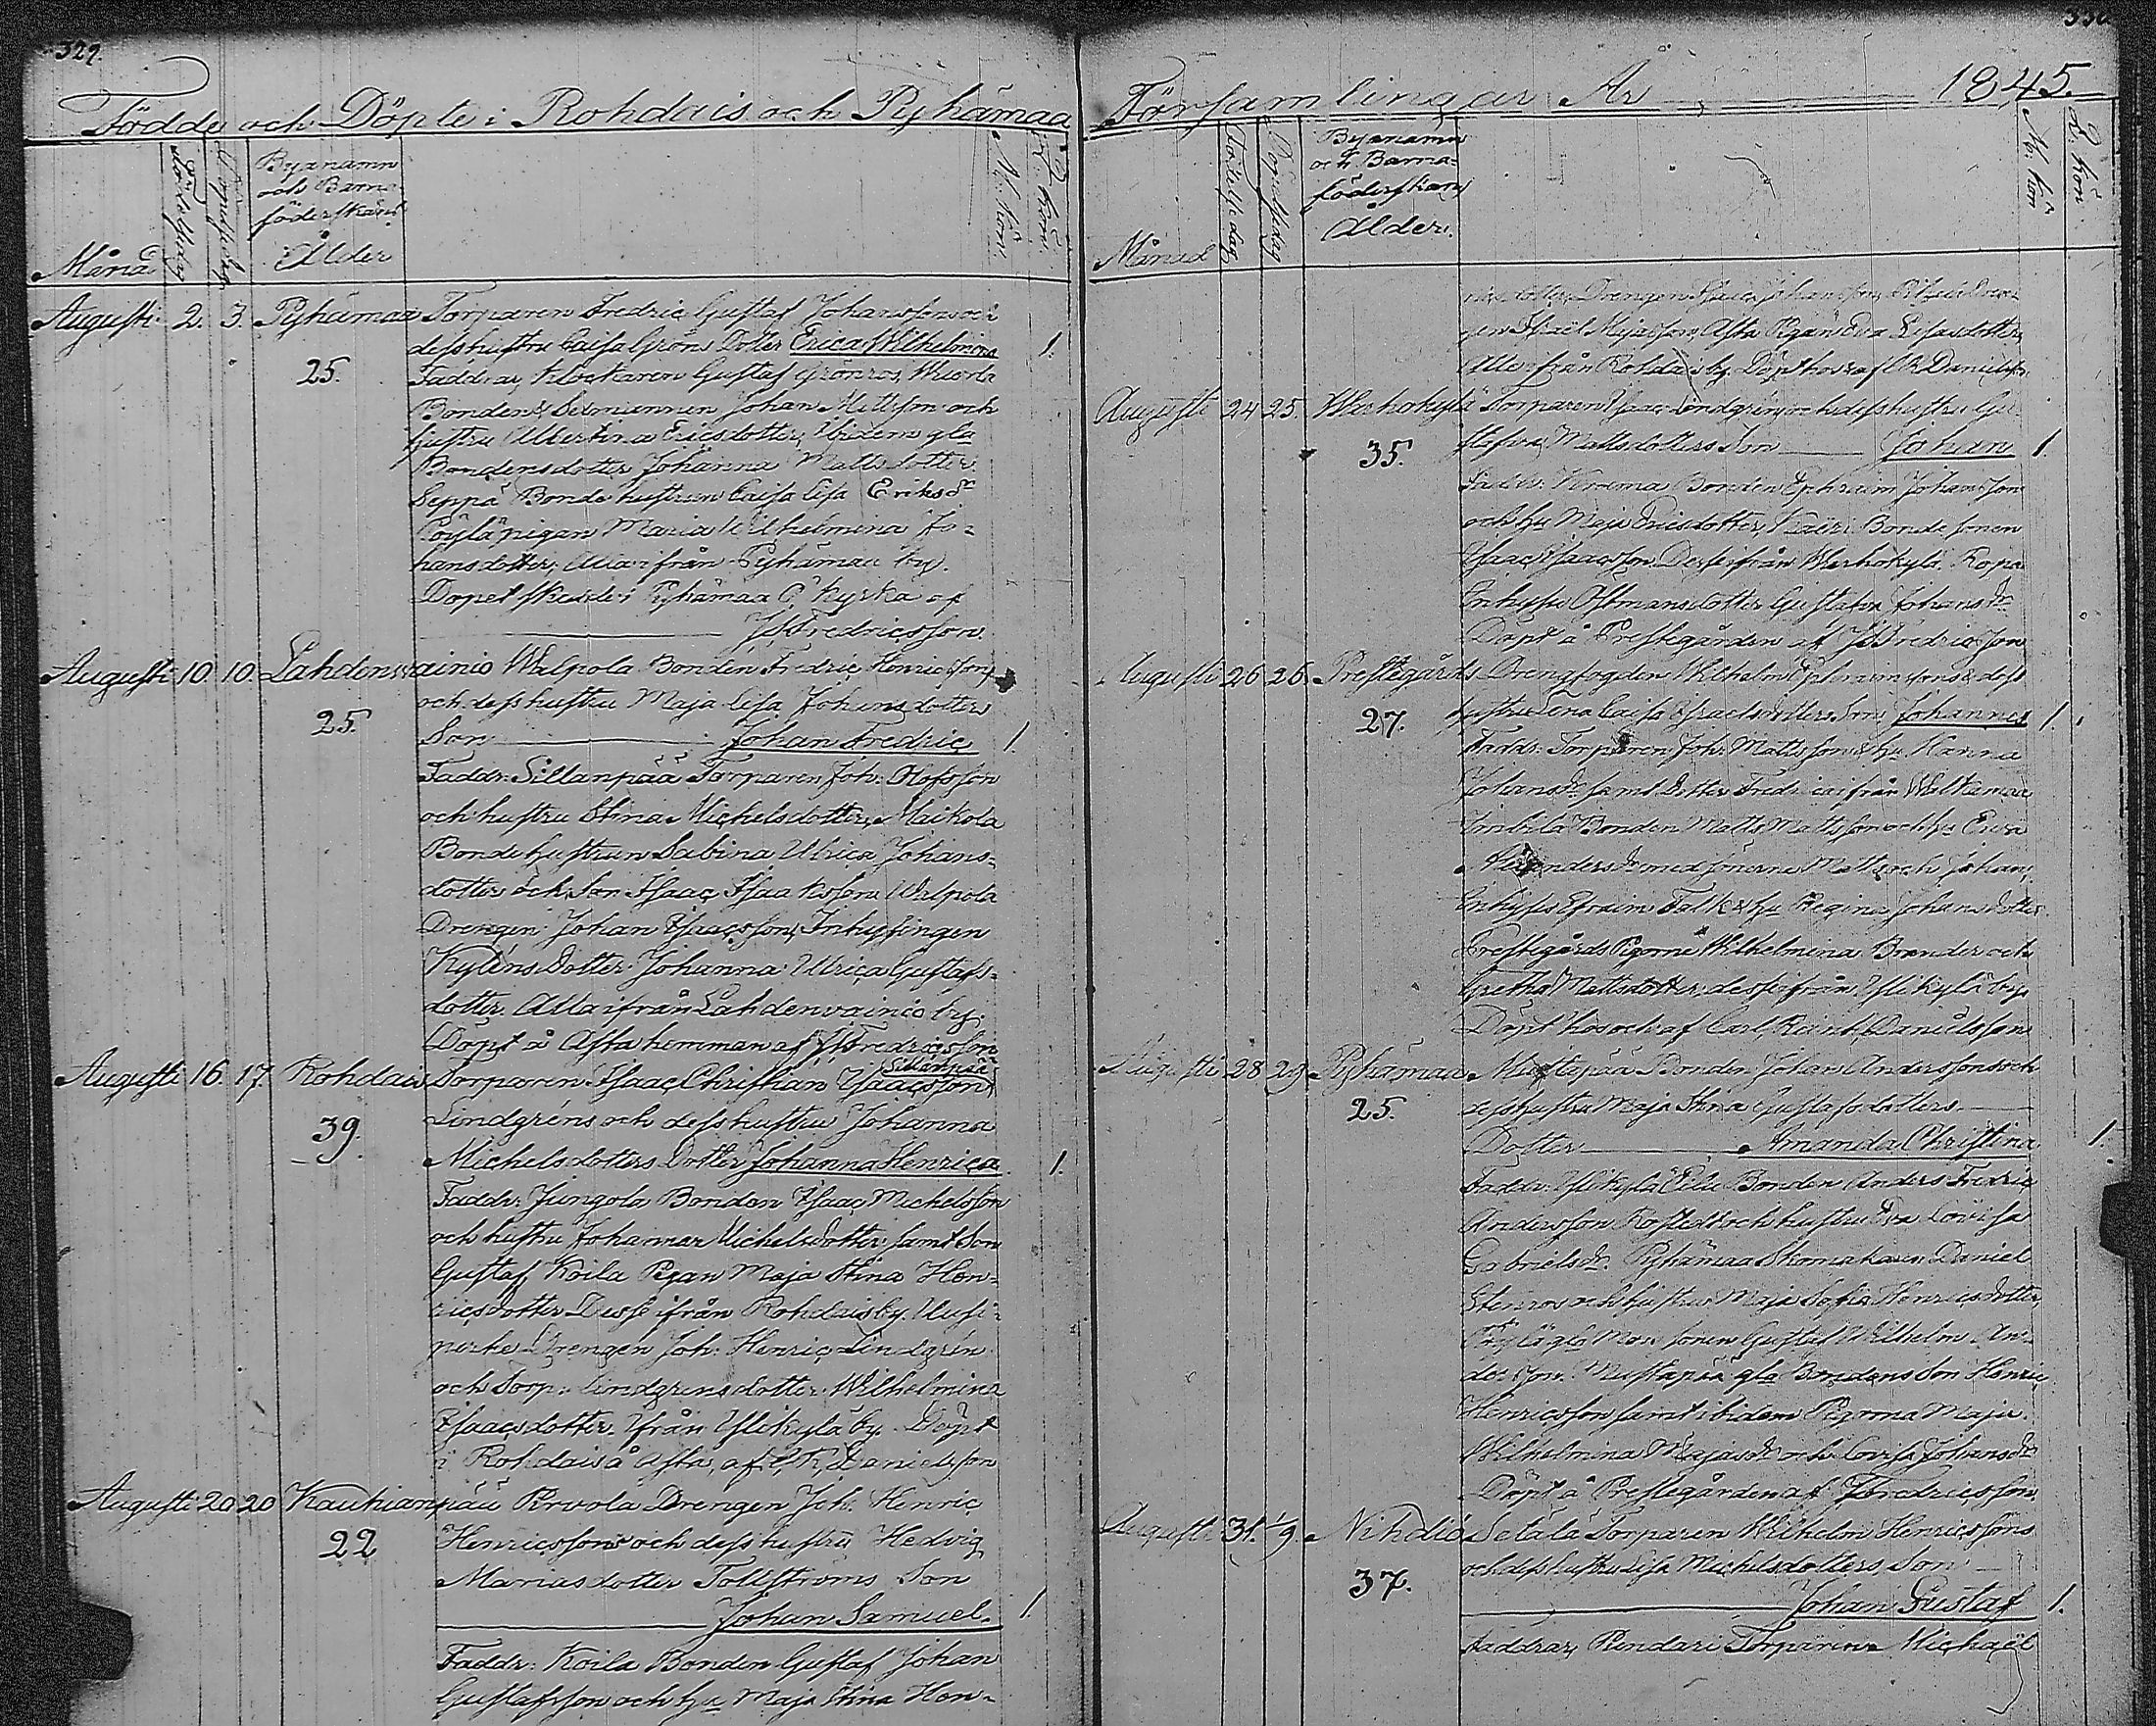 329.
Födde och Döpte i Rohdais och Pyhämaa
Månad
Byanamn
och Barna-
föderskans
Ålder
M. kön.
Q. kön.
Augusti 2. 3. Pyhämaa Torparen Fredric Gustaf Johansson och
25.
desshustru Caisa Gröns Dotter Erica Wilhelmina 1.
Faddrar, Klockaren Gustaf Grönros, Wuorla
Bonden & Sexmannen Johan Mattsson och
hustru Albertina Ericsdotter, Ibidem gla
Bondensdotter Johanna Mattsdotter
Seppä Bonde hustrun Caisa Lisa Eriksdr
Pöylä pigan Maria Wilhelmina Jo-
hansdotter, Alla ifrån Pyhämaa by.
Dopet skedde i Pyhämaa C. kyrka af
J. Fredricsson.
Augusti 10. 10. Lahdenvainio Walpola Bonden Fredric Henricsson
25.
och desshustru Maja Lisa Johansdotters
Son Johan Fredric 1.
Faddr: Sillanpää Torparen Joh: Olofsson
och hustru Stina Michelsdotter, Maikola
Bondehustrun Sabina Ulrica Johans-
dotter och Son Isaac Isaaksson, Walpola
Drengen Johan Isaacsson, Inhysingen
Kyléns Dotter Johanna Ulrica Gustafs-
dotter. Alla ifrån Lahdenvainio by.
Döpt å Asta hemman af J. Fredricsson
Augusti 16. 17. Rohdais Torparen Isaac Christian Isaacsson
Sillanpää
39.
Lindgréns och desshustru Johanna
Michelsdotters Dotter Johanna Henrica. 1.
Faddr: Jungola Bonden Isaac Michelsson
och hustru Johanna Michelsdotter samt Son
Gustaf, Koila Pigan Maja Stina Hen-
ricsdotter Desse ifrån Rohdais by. Uusi-
perke Drengen Joh: Henric Lindgrén
och Torp: Lindgrens dotter Wilhelmina
Isaacsdotter. Ifrån Ylikylä by. Döpt
i Rohdais å Asta, af C. R. Danielsson
Augusti 20 20 Kauhianpää Pirvola Drengen Joh: Henric
22
Henricssons och desshustru Hedvig
Mariasdotter Tollströms Son
Johan Samuel. 1.
Faddr: Koila Bonden Gustaf Johan
Gustafsson och hu Maja Stina Hen-
330
Församlingar År 1845.
Månad
Födelsedag
Dopelsedag
Byanamn
och Barna-
föderskans
Ålder.
M. kön
Q. kön
ricsdotter, Drengen Isaac Johansson, Dren-
gen Israel Mijasson, Asta Pigan Eva Lisasdotter,
Alle ifrån Rohdais by. Döpt hos & af C. R. Danielsson.
Augusti 24 25. Werhokylä Torparen Isaac Lindgréns och desshustru Gu-
35.
stafva Mattsdotters Son Johan 1.
Faddr: Bonden Ephraim Johansson
och hu Maja Ericsdotter, Kairi Bonde sonen
Isaac Isaacsson. Desse ifrån Werhokylä.
Enkefru Östmans dotter Gustafva Johansdr
Döpt å Prestegården af J. Fredricsson
Augusti 26 26. Prestegårds Drengfogden Wilhelm Ephraimsons & dess
27.
hustru Lena Caisa Israelsdotters Son Johannes 1.
Faddr: Torparen Joh: Mattsson & hu Hanna
Johansdr samt dotter Fredrica ifrån Weltamaa
Imbila Bonden Matts Mattsson och hu Ewa
Alexandersdr med sönerna Matts och Johan,
Enhyses Efraim Falk & hu Regina Johansdotter
Prestegårds Pigorne Wilhelmina Brander och
Gretha Mattsdotter, desse ifrån Ylikylä by
Döpt hos och af Carl Reinh. Danielsson
Augusti 28 29. Pyhämaa Mustapää Bonden Johan Anderssons och
25.
desshustru Maja Stina Gustafsdotters
Dotter Amanda Christina 1.
Faddr: Ylikylä Eilu Bonden Anders Fredric
Andersson Rostedt och hustru Eva Lovisa
Gabrielsdr. Pyhämaa Skomakaren Daniel
Stenros och hustru Maja Sofia Henricsdotter,
Pöylä gla Mon sonen Gustaf Wilhelm An-
dersson. Mustapää gla Bondens Son Henric
Henricsson samt ibidem Pigorna Maja
Wilhelmina Majasdr och Lovisa Johansdr
Döpt å Prestegården af J. Fredricsson.
Augusti 31. 1/9. Nihdiö Setälä Torparen Wilhelm Henricssons
37.
och desshustru Lisa Michelsdotters Son
Johan Gustaf 1.
Faddrar, Rindari Torparen Michaël